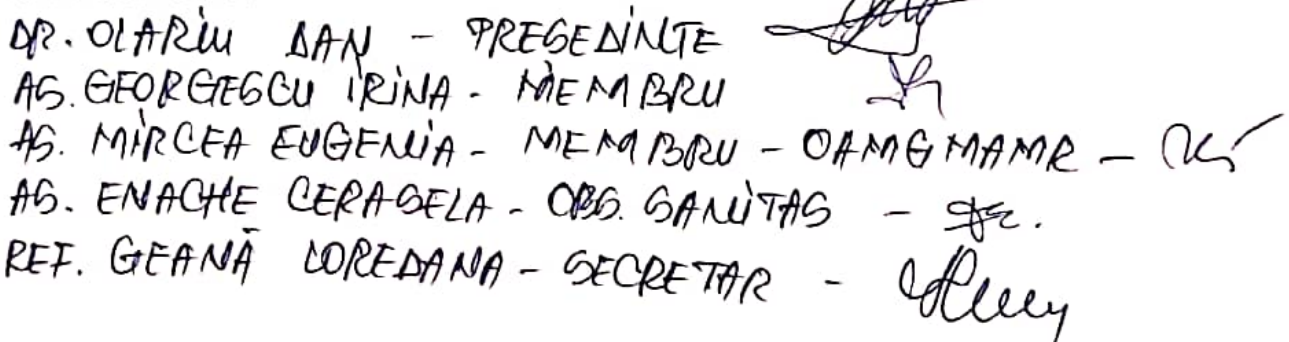 DR. OLARIU DAN - PRESEDINTE
AS. GEORGESCU IRINA - MEMBRU
AS. MIRCEA EUGENIA - MEMBRU - OAMGMAMR -
AS. ENACHE CERASELA - OBS. SANITAS -
REF. GEANĂ LOREDANA - SECRETAR -